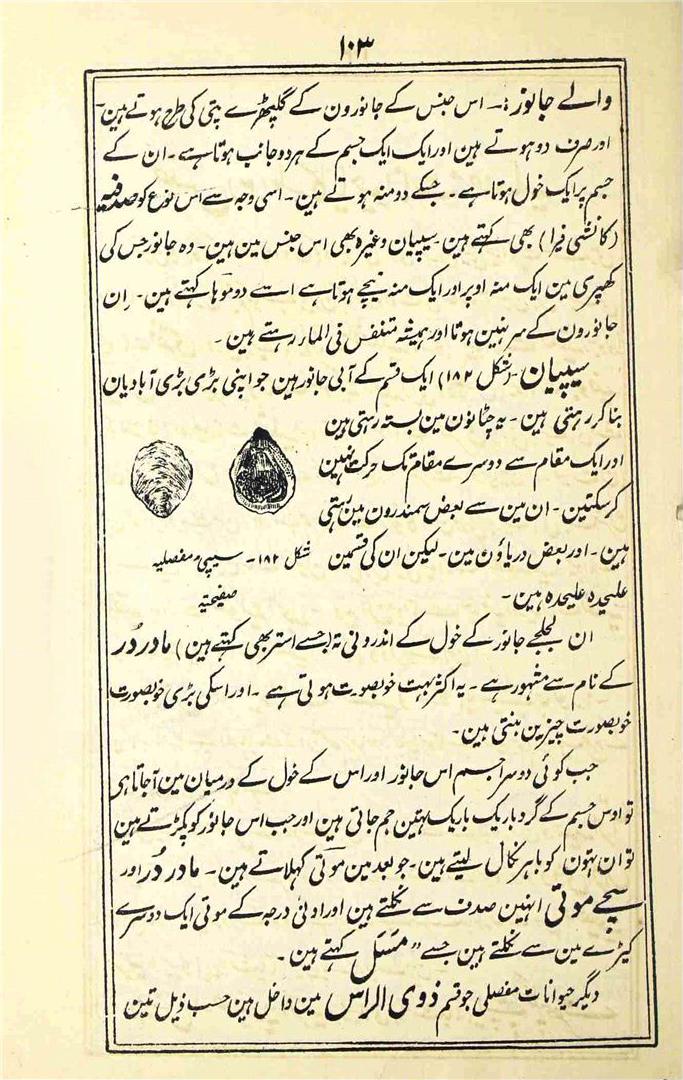 ۱۰۳
والے جانور:۔ اس جنس کے جانورون کے گلپھڑے پتی کی طرح ہوتے ہین۔
اور صرف دو ہوتے ہین اور ایک ایک جسم کے ہر دو جانب ہوتا ہے۔ ان کے
جسم پر ایک خول ہوتا ہے۔ جسکے دو منہ ہوتے ہین۔ اسی وجہ سے اس نوع کو صدفیہ
(کانشی فیرا) بھی کہتے ہین۔ سیپیان وغیرہ بھی اس جنس مین ہین۔ وہ جانور جس کی
کھپری مین ایک منہ اوپر اور ایک منہ نیچے ہوتا ہے اسے دو موہا کہتے ہین۔ اِن
جانورون کے سر نہین ہوتا اور ہمیشہ متنفس فی الماء رہتے ہین۔
سیپیان۔ (شکل ۱۸۲) ایک قسم کے آبی جانور ہین جو اپنی بڑی بڑی آبادیان
بنا کر رہتی ہین۔ یہ چٹانون مین بستہ رہتی ہین
اور ایک مقام سے دوسرے مقام تک حرکت نہین
کر سکتین۔ ان مین سے بعض سمندرون مین رہتی
ہین۔ اور بعض دریاؤن مین۔ لیکن ان کی قسمین
علیحدہ علیحدہ ہین۔
شکل ۱۸۲۔ سیپی مفصلیہ
صفیحتیہ
ان لجلجے جانور کے خول کے اندرونی تہ (جسے استر بھی کہتے ہین) مادر دُر
کے نام سے مشہور ہے۔ یہ اکثر بہت خوبصورت ہوتی ہے۔ اور اسکی بڑی خوبصورت
خوبصورت چیزین بنتی ہین۔
جب کوئی دوسرا جسم اس جانور اور اس کے خول کے درمیان مین آجاتا ہی
تو اوس جسم کے گرد باریک باریک تہین جم جاتی ہین اور جب اس جانور کو پکڑتے ہین
تو ان تہون کو باہر نکال لیتے ہین۔ جو بعد مین موتی کہلاتے ہین۔ مادر دُر اور
سچے موتی انہین صدف سے نکلتے ہین اور ادنیٰ درجہ کے موتی ایک دوسرے
کیڑے مین سے نکلتے ہین جسے " مسل کہتے ہین۔
دیگر حیوانات مفصلی جو قسم ذوی الراس مین داخل ہین حسب ذیل تین